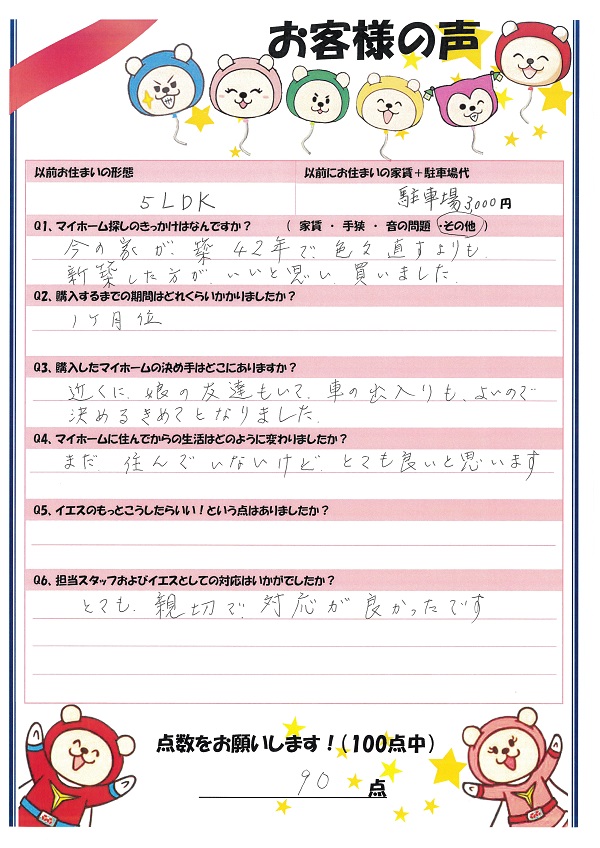 お客様の声
以前お住まいの形態
以前にお住まいの家賃＋駐車場代
5LDK
駐車場3,000円
Q1、マイホーム探しのきっかけはなんですか？　（ 家賃 ・ 手狭 ・ 音の問題 ・その他 ）
今の家が、築42年で、色々直すよりも、
新築した方が、いいと思い、買いました。
Q2、購入するまでの期間はどれくらいかかりましたか？
1ヶ月位
Q3、購入したマイホームの決め手はどこにありますか？
近くに、娘の友達もいて、車の出入りも、よいので
決めるきめてとなりました。
Q4、マイホームに住んでからの生活はどのように変わりましたか？
まだ、住んでいないけど、とても良いと思います
Q5、イエスのもっとこうしたらいい！という点はありましたか？
Q6、担当スタッフおよびイエスとしての対応はいかがでしたか？
とても、親切で、対応が良かったです
点数をお願いします！（100点中）
90 点